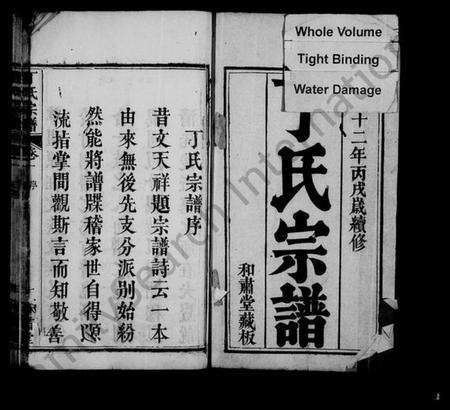 Whole Volume
Tight Binding
Water Damage
十二年丙戌歲續修
丁氏宗譜
和肅堂藏板
丁氏宗譜序
昔文天祥題宗譜詩云一本
由來無後先支分派別始紛
然能將譜牒稽家世自得源
流掐掌間觀斯言而知敬善
氏宗譜